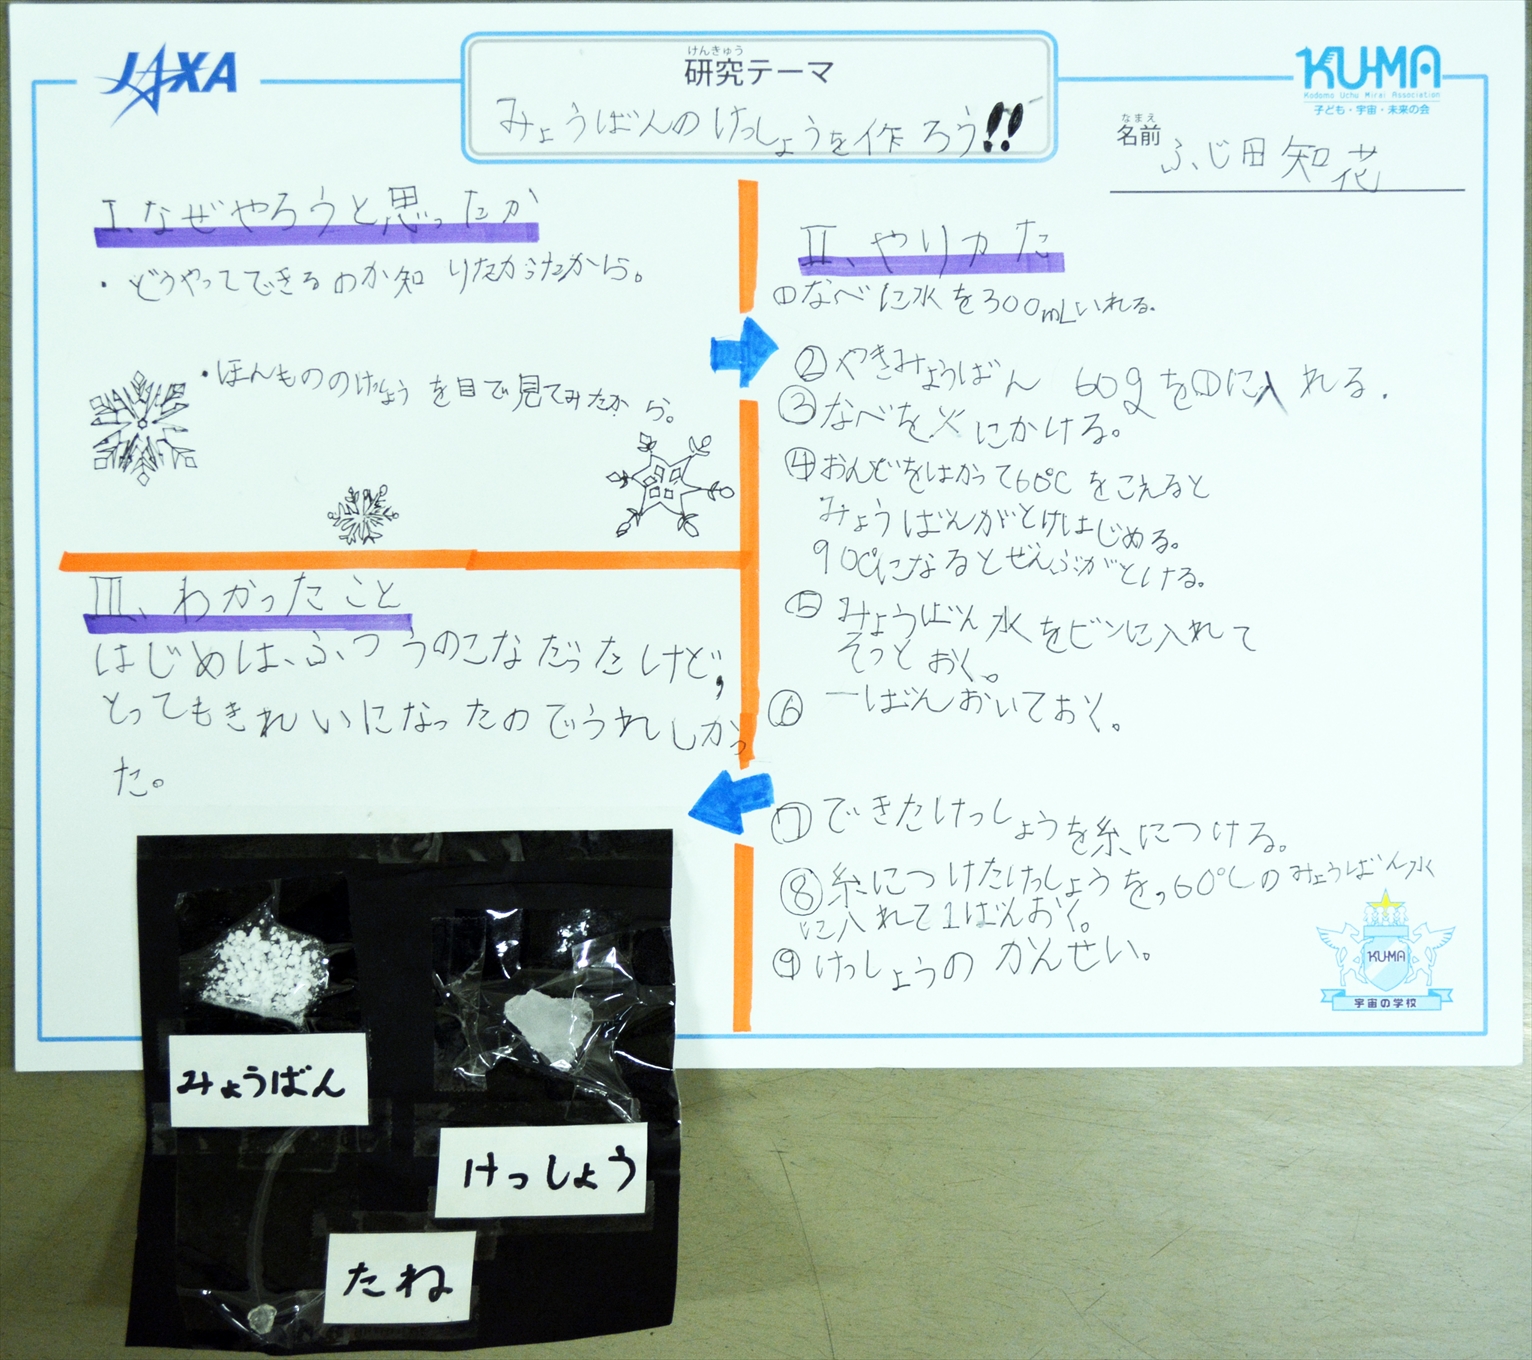 JAXA
けんきゅう
研究テーマ
みょうばんのけっしょうを作ろう!!
KUMA
Kodomo Uchu Mirai Association
子ども・宇宙・未来の会
なまえ
名前
ふじ田知花
I、なぜやろうと思ったか
・どうやってできるのか知りたかったから。
・ほんもののけっしょうを目で見てみたかったから。
II、やりかた
①なべに水を300mLいれる。
②やきみょうばん 60gを①に入れる.
③なべを火にかける。
④おんどをはかって60℃をこえると
みょうばんがとけはじめる。
90℃になるとぜんぶがとける。
⑤みょうばん水をビンに入れて
そっとおく。
⑥一ばんおいておく。
⑦できたけっしょうを糸につける。
⑧糸につけたけっしょうを60℃のみょうばん水
に入れて1ばんおく。
⑨けっしょうのかんせい。
III、わかったこと
はじめは、ふつうのこなだったけど,
とってもきれいになったのでうれしかっ
た。
みょうばん
けっしょう
たね
KU-MA
宇宙の学校